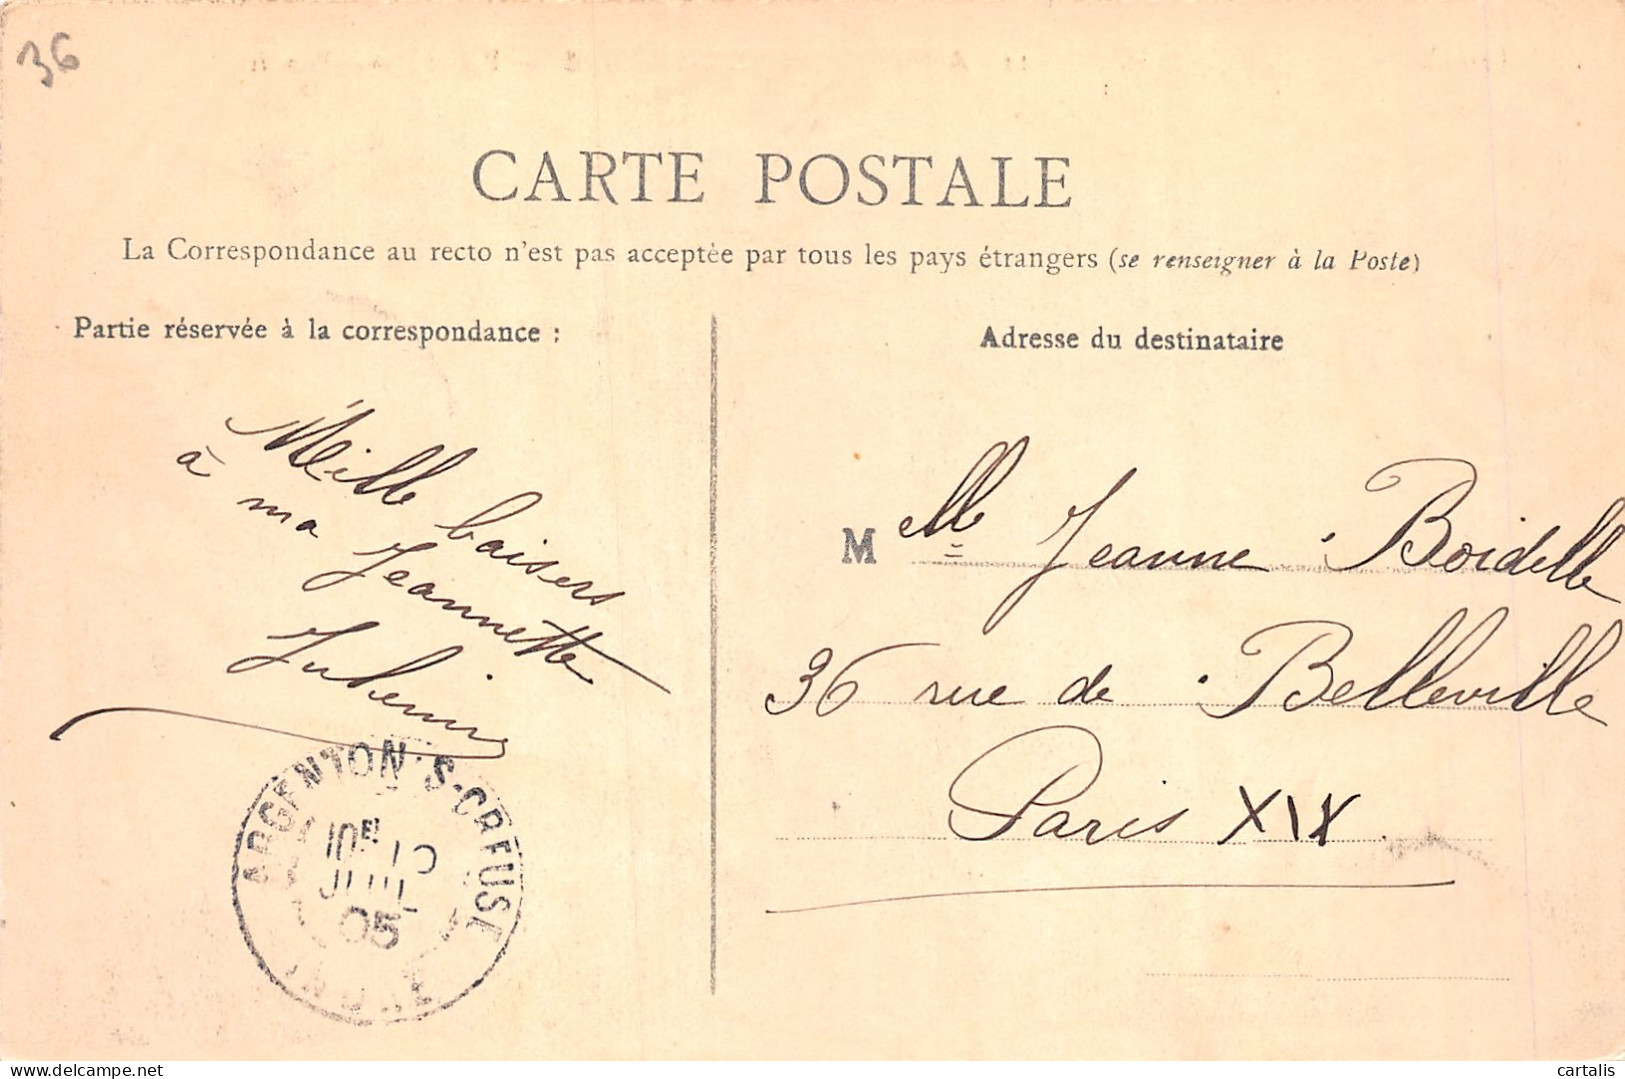 36
CARTE POSTALE
La Correspondance au recto n'est pas acceptée par tous les pays étrangers (se renseigner à la Poste)
Partie réservée à la correspondance :
Mille baisers
à ma Jeannette
Adresse du destinataire
Melle Jeanne Boidelle
36 rue de Belleville
Paris XIX
ARGENTON-S-CREUSE
10E
JUIL
05
delcampe.net
cartalis